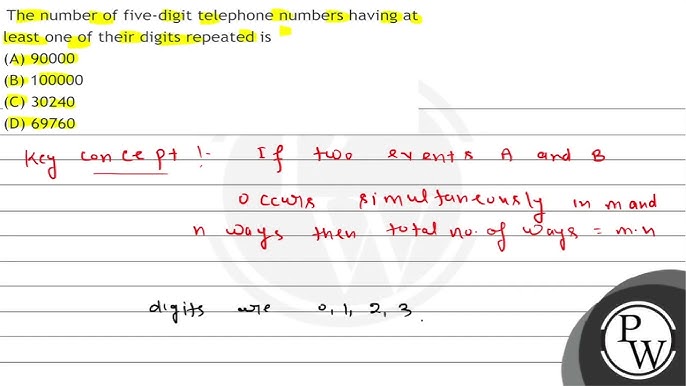 The number of five-digit telephone numbers having at
least one of their digits repeated is
(A) 90000
(B) 100000
(C) 30240
(D) 69760
Key concept :- If two events A and B
occurs simultaneously in m and
n ways then total no. of ways = m.n
digits are 0, 1, 2, 3.
PW